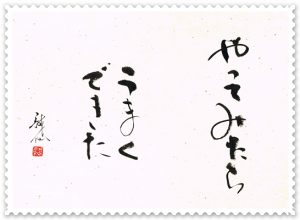 やってみたら
うまく
できた